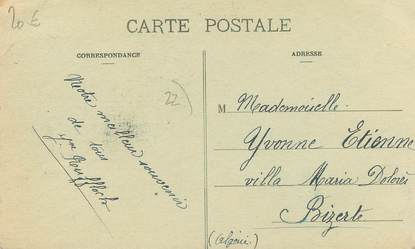 20 €
CARTE POSTALE
CORRESPONDANCE
ADRESSE
Notre meilleur souvenir
de tous
22
M Mademoiselle
Yvonne Etienne
villa Maria Dolorès
Bizerte
(Algérie)